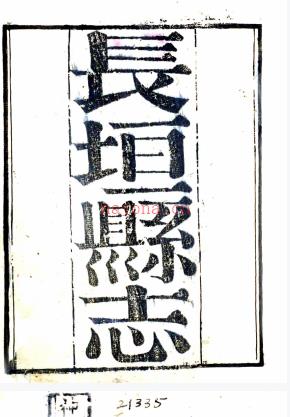 長垣縣志
21335